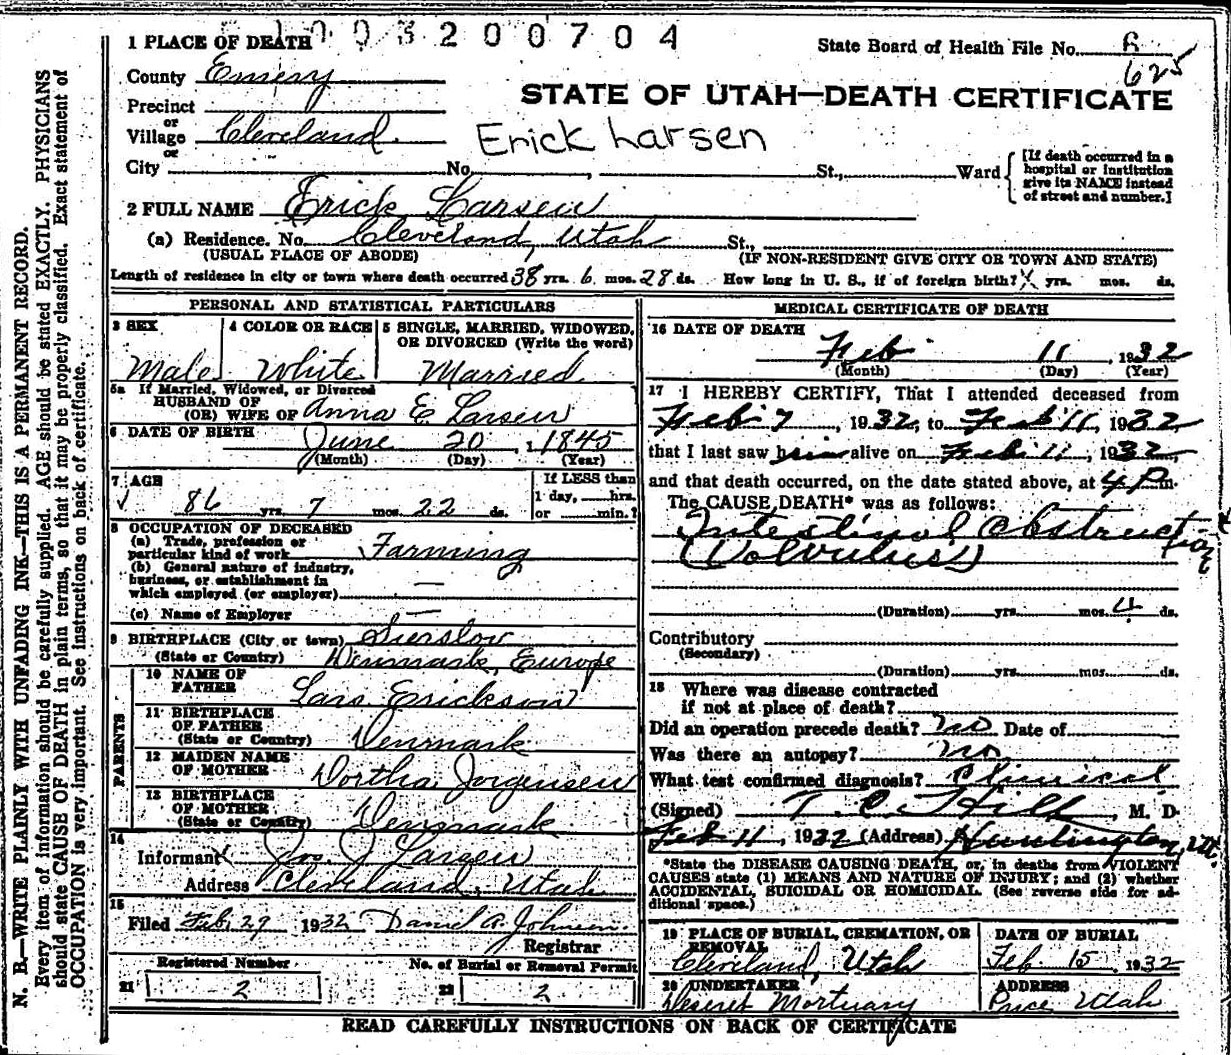 1003200704
1 PLACE OF DEATH
State Board of Health File No. R
625
County Emery
STATE OF UTAH—DEATH CERTIFICATE
Precinct
or
Village Cleveland.
Erick Larsen
or
City No. , St., Ward
[If death occurred in a
hospital or institution
give its NAME instead
of street and number.]
2 FULL NAME Erick Larsen
(a) Residence. No. Cleveland, Utah St.,
(USUAL PLACE OF ABODE) (IF NON-RESIDENT GIVE CITY OR TOWN AND STATE)
Length of residence in city or town where death occurred 38 yrs. 6 mos. 28 ds. How long in U. S., if of foreign birth? X yrs. mos. ds.
PERSONAL AND STATISTICAL PARTICULARS
3 SEX
Male
4 COLOR OR RACE
White
5 SINGLE, MARRIED, WIDOWED,
OR DIVORCED (Write the word)
Married
5a If Married, Widowed, or Divorced
HUSBAND OF
(OR) WIFE OF Anna E. Larsen
6 DATE OF BIRTH June 20, 1845
(Month) (Day) (Year)
7 AGE
86 yrs. 7 mos. 22 ds.
If LESS than
1 day, hrs.
or min.?
8 OCCUPATION OF DECEASED
(a) Trade, profession or
particular kind of work Farming
(b) General nature of industry,
business, or establishment in
which employed (or employer) —
(c) Name of Employer —
9 BIRTHPLACE (City or town)
(State or Country) Denmark, Europe
PARENTS
10 NAME OF
FATHER Lars Erickson
11 BIRTHPLACE
OF FATHER
(State or Country) Denmark
12 MAIDEN NAME
OF MOTHER Dortha Jorgensen
13 BIRTHPLACE
OF MOTHER
(State or Country) Denmark
14
Informant X Jos. J. Larsen
Address Cleveland, Utah
15
Filed Feb. 29 1932 Daniel A. Johnson.
Registrar
Registered Number
21 2
No. of Burial or Removal Permit
22 2
MEDICAL CERTIFICATE OF DEATH
16 DATE OF DEATH
Feb. 11, 1932
(Month) (Day) (Year)
17 I HEREBY CERTIFY, That I attended deceased from
Feb. 7, 1932, to Feb. 11, 1932
that I last saw him alive on Feb. 11, 1932,
and that death occurred, on the date stated above, at 4 P m.
The CAUSE DEATH* was as follows:
Intestinal Obstruction
(Volvulus)
(Duration) yrs. mos. 4 ds.
Contributory
(Secondary)
(Duration) yrs. mos. ds.
18 Where was disease contracted
if not at place of death?
Did an operation precede death? no Date of
Was there an autopsy? no
What test confirmed diagnosis? Clinical
(Signed) T. C. Hill, M. D.
Feb 11, 1932 (Address) Huntington, Ut.
*State the DISEASE CAUSING DEATH, or, in deaths from VIOLENT
CAUSES state (1) MEANS AND NATURE OF INJURY; and (2) whether
ACCIDENTAL, SUICIDAL OR HOMICIDAL. (See reverse side for ad-
ditional space.)
19 PLACE OF BURIAL, CREMATION, OR
REMOVAL
Cleveland, Utah
DATE OF BURIAL
Feb. 15, 1932
20 UNDERTAKER
Deseret Mortuary
ADDRESS
Price Utah
READ CAREFULLY INSTRUCTIONS ON BACK OF CERTIFICATE
N. B.—WRITE PLAINLY WITH UNFADING INK—THIS IS A PERMANENT RECORD.
Every item of information should be carefully supplied. AGE should be stated EXACTLY. PHYSICIANS
should state CAUSE OF DEATH in plain terms, so that it may be properly classified. Exact statement of
OCCUPATION is very important. See instructions on back of certificate.